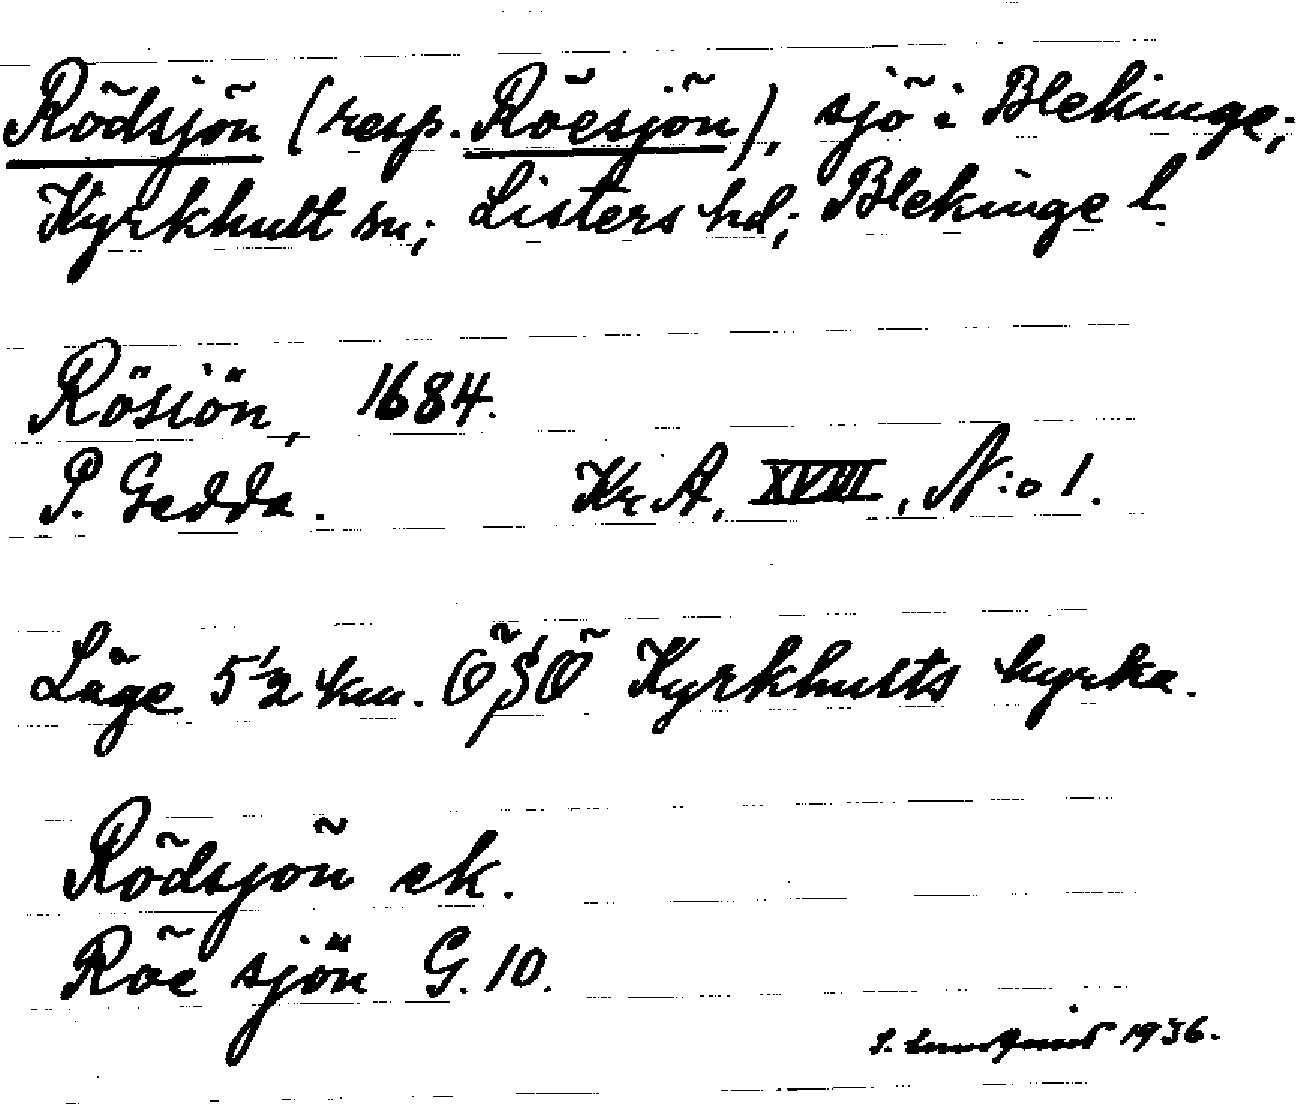 Rödsjön (resp. Röesjön), sjö i Blekinge;
Kyrkhult sn; Listers hd; Blekinge l.
Rösiön, 1684.
P. Gedda. Kr. A. XVIII, N:o 1.
Läge 5 1/2 km. Ö§Ö Kyrkhults kyrka.
Rödsjön ek.
Röe sjön G. 10.
S. 1936.